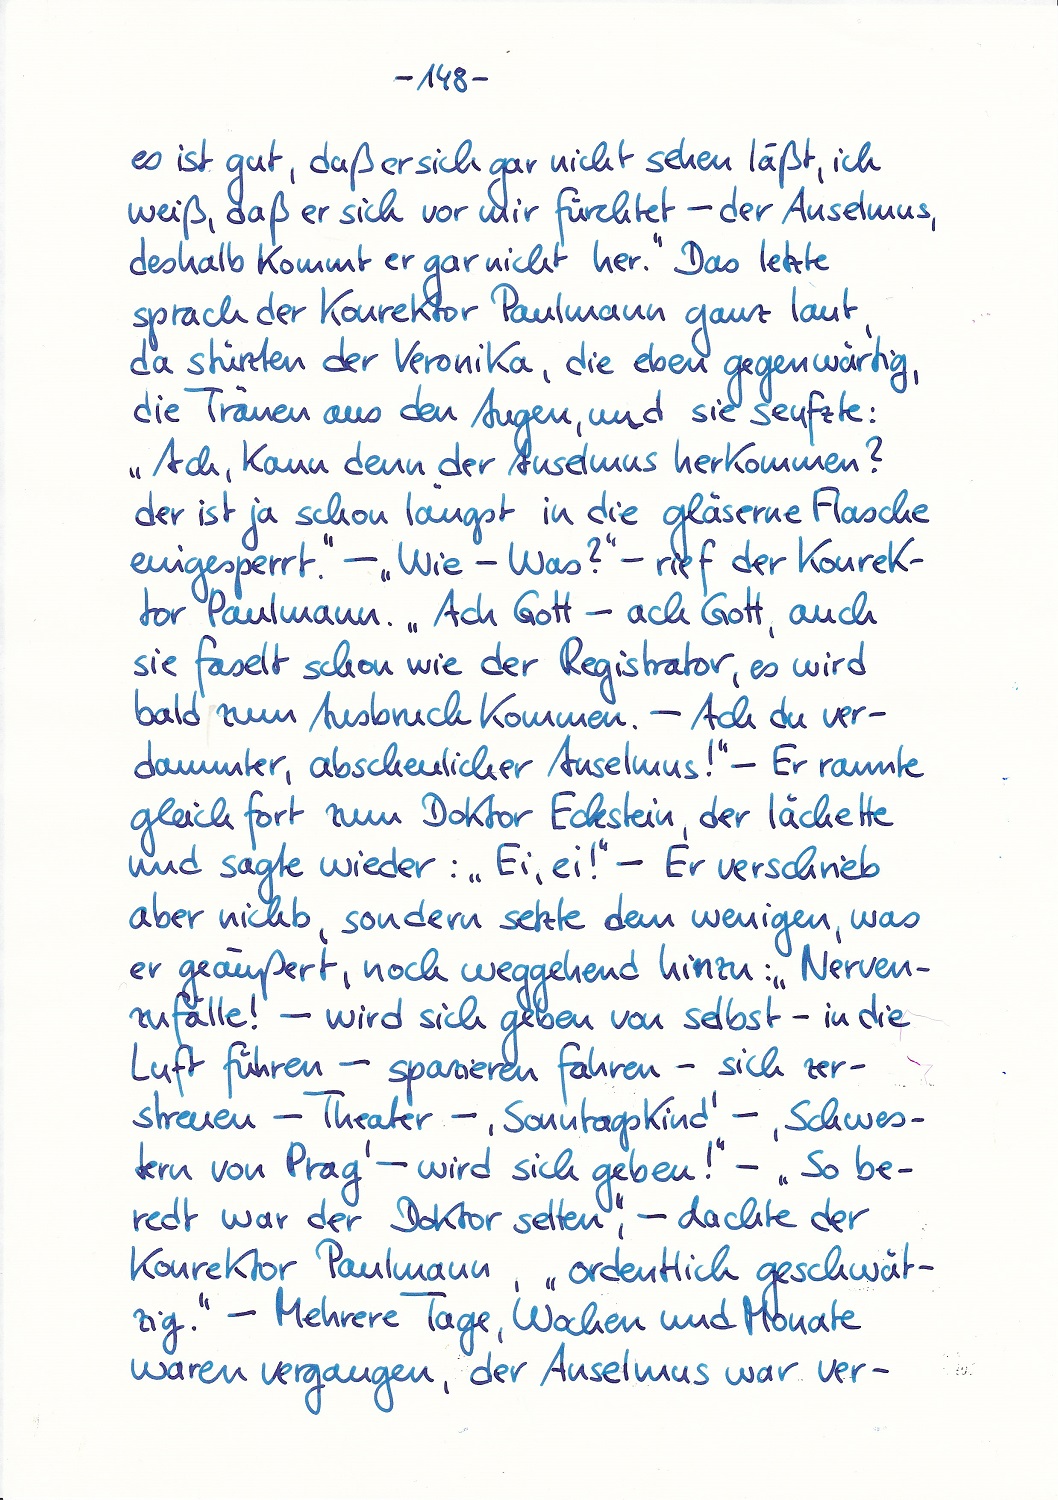 -148-
es ist gut, daß er sich gar nicht sehen läßt, ich
weiß, daß er sich vor mir fürchtet – der Anselmus,
deshalb kommt er gar nicht her.“ Das letzte
sprach der Konrektor Paulmann ganz laut,
da stürzten der Veronika, die eben gegenwärtig,
die Tränen aus den Augen, und sie seufzte:
„Ach, kann denn der Anselmus herkommen?
der ist ja schon längst in die gläserne Flasche
eingesperrt.“ – „Wie – Was?“ – rief der Konrek-
tor Paulmann. „Ach Gott – ach Gott, auch
sie faselt schon wie der Registrator, es wird
bald zum Ausbruch kommen. – Ach du ver-
dammter, abscheulicher Anselmus!“ – Er rannte
gleich fort zum Doktor Eckstein, der lächelte
und sagte wieder: „Ei, ei!“ – Er verschrieb
aber nichts, sondern setzte dem wenigen, was
er geäußert, noch weggehend hinzu: „Nerven-
zufälle! – wird sich geben von selbst – in die
Luft führen – spazieren fahren – sich zer-
streuen – Theater – ‚Sonntagskind‘ – ‚Schwes-
tern von Prag‘ – wird sich geben!“ – „So be-
redt war der Doktor selten“, – dachte der
Konrektor Paulmann, „ordentlich geschwät-
zig.“ – Mehrere Tage, Wochen und Monate
waren vergangen, der Anselmus war ver-